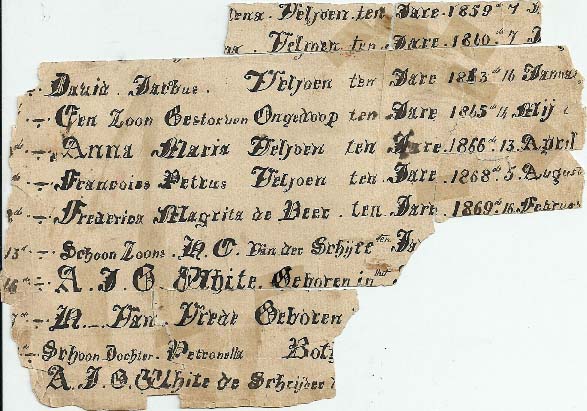 ena. Veljoen ten Jare 1859 7 J
na. Velmen ten Jare. 1860 7 J
David Jacbus. Veljoen ten Jare 1863 16 Janna
Een Zoon Gestorven Ongedoop ten Jare 1865 14 Mij
Anna Maria Veljoen ten Jare. 1866. 13. April
Francoies Petrus Veljoen ten Jare 1868. 5. August
Frederica Magrita de Beer. ten Jare. 1869. 16. Februa
13 Schoon Zoons. N. C. Van der Schijte ten Ja
A. J. G. White. Geboren in het
N. Van Vrede Geboren
Schoon Dochter. Petronella Bot
A. J. G. White de Schrijber